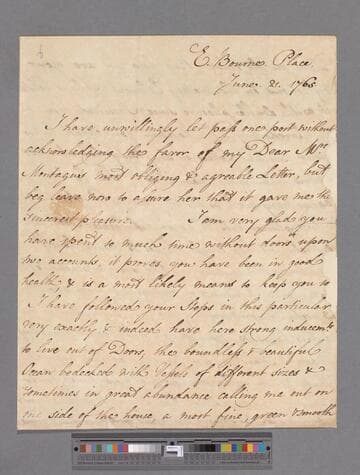 E. Bourne Place.
June. 21. 1765
I have unwillingly let pass one post without
acknowledging the favor of my Dear Mrs
Montagues most obliging & agreable Letter, but
beg leave now to assure her that it gave me the
sincerest pleasure. I am very glad you
have spent so much time without doors, upon
two accounts, it proves you have been in good
health & is a most likely means to keep you so
I have followed your Steps in this particular
very exactly & indeed have here strong inducemts
to live out of Doors, the boundless & beautiful
Ocean bedecked with Vessels of different sizes &
sometimes in great abundance calling me out on
one side of the house, a most fine, green & smooth